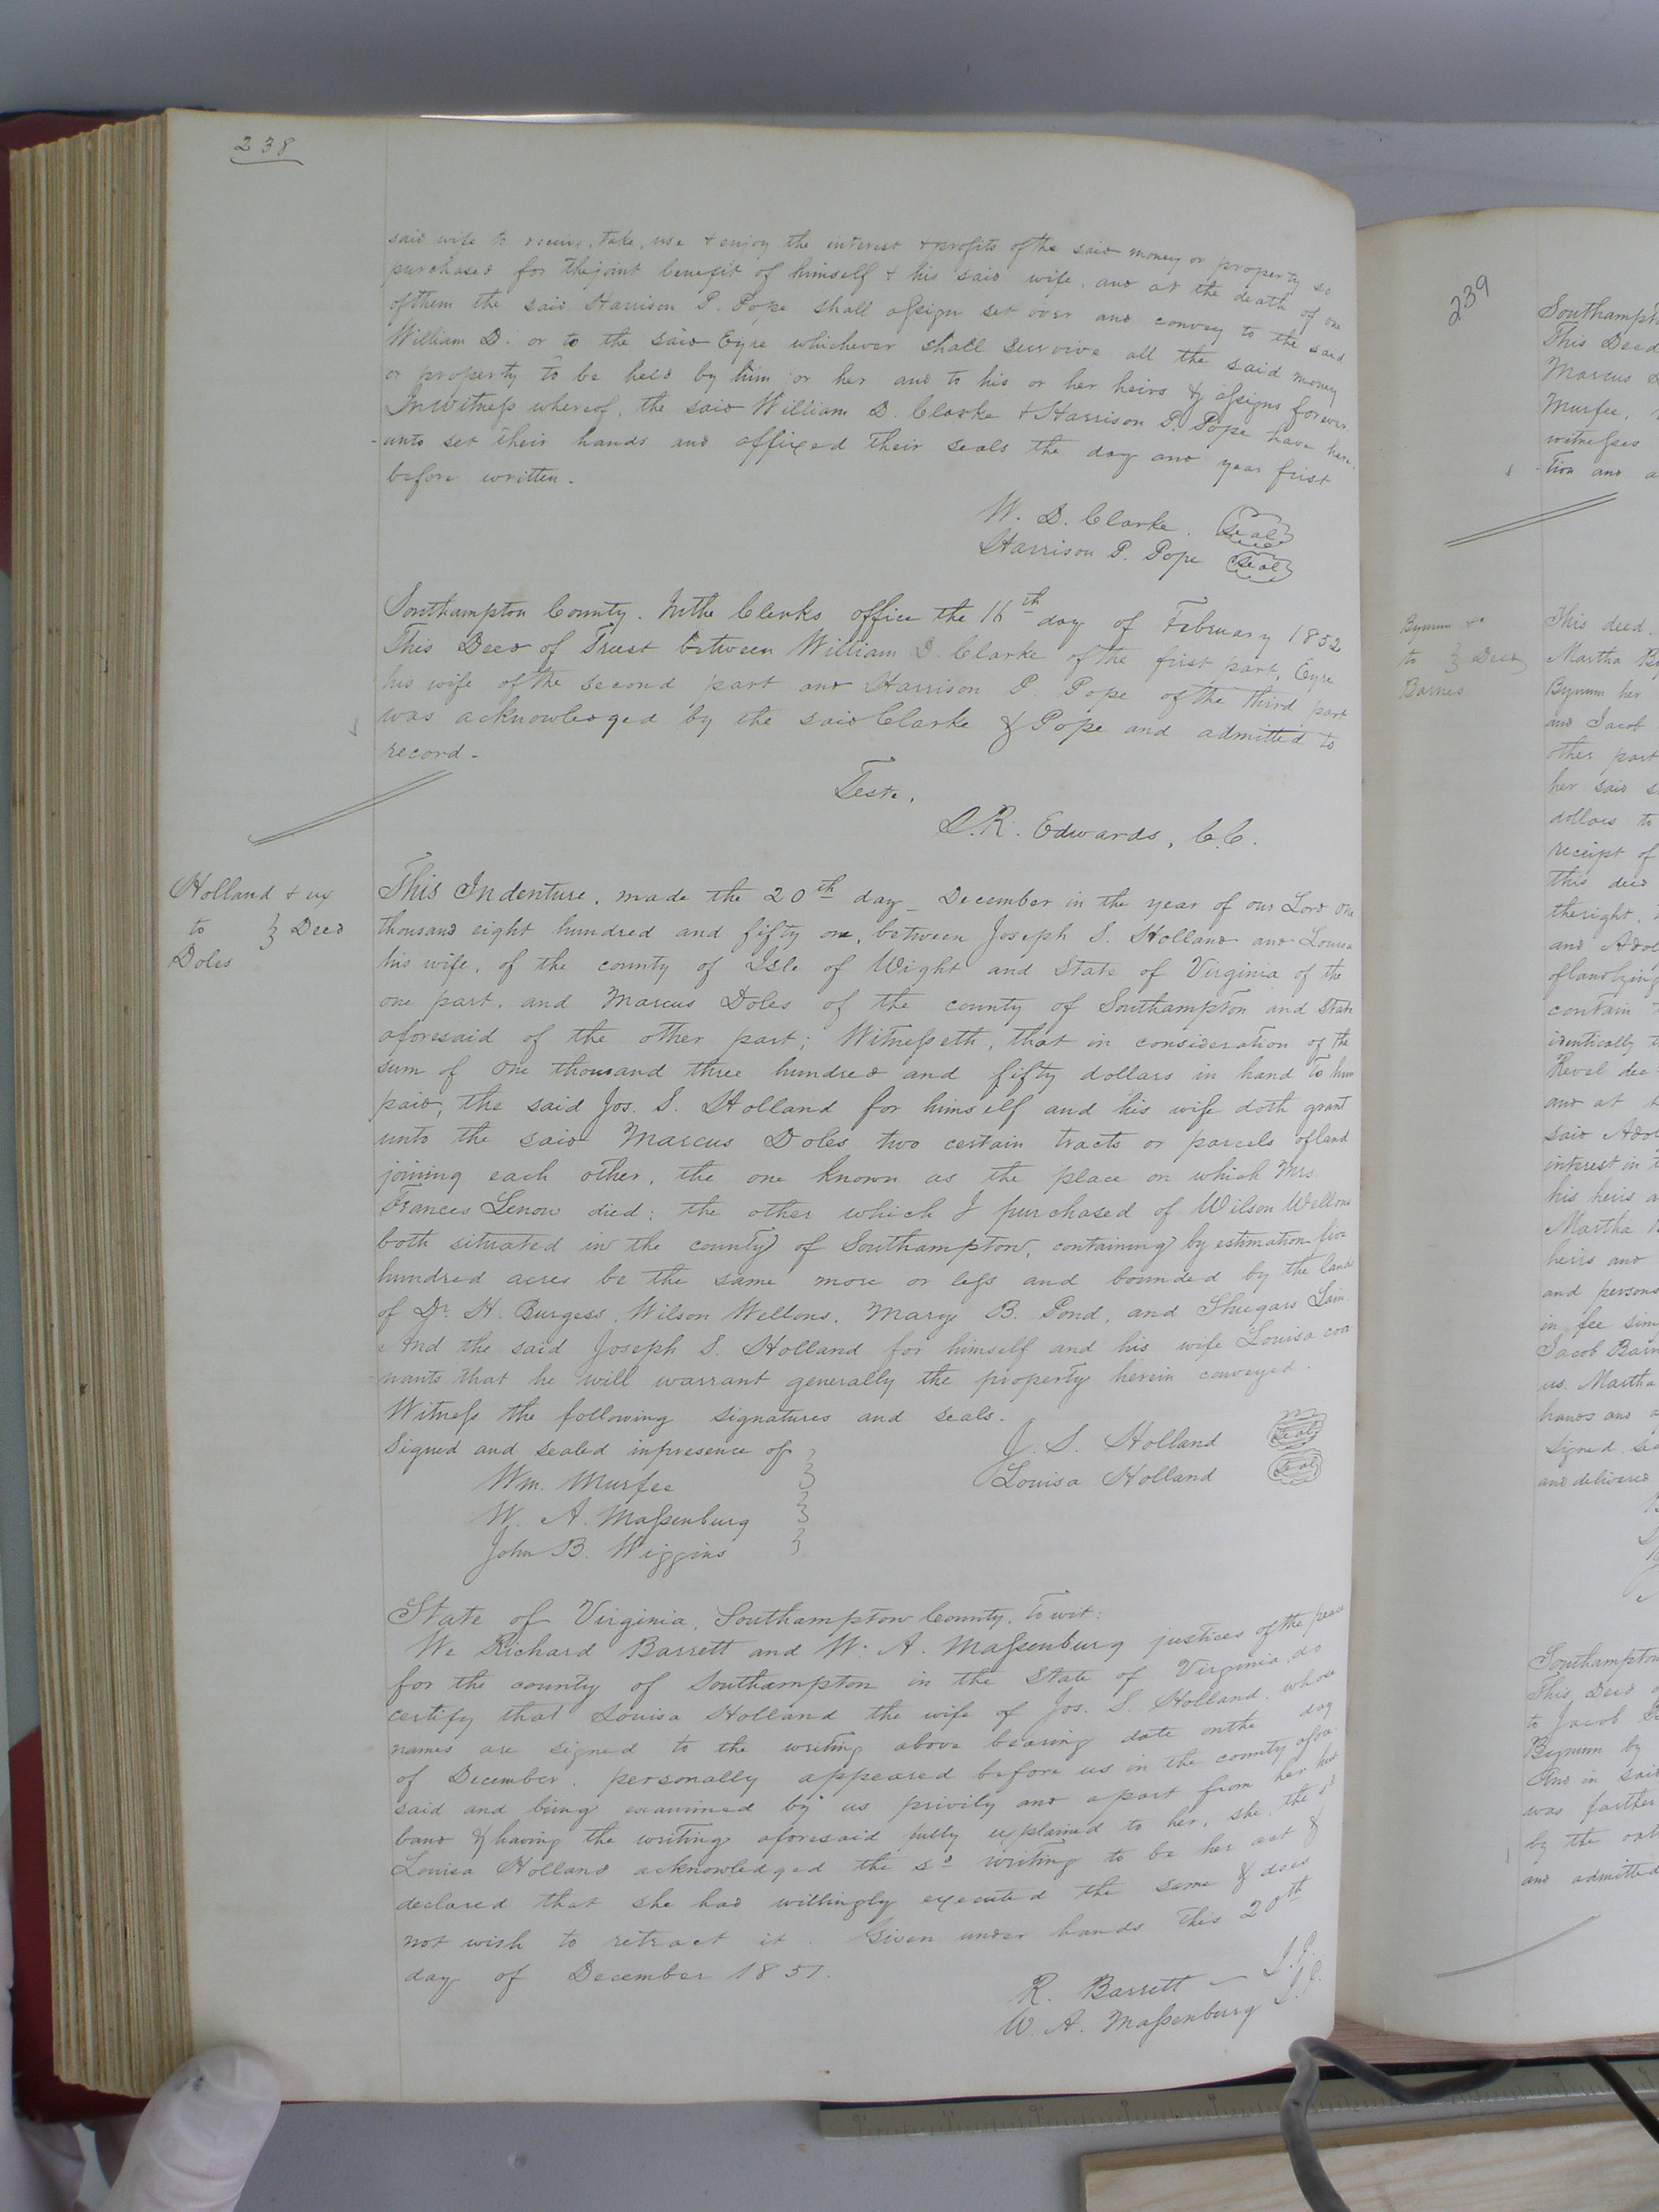 238
said wife to receive, take, use & enjoy the interest & profits of the said money or property so
purchased for the joint benefit of himself & his said wife, and at the death of one
of them the said Harrison P. Pope shall assign set over and convey to the said
William D. or to the said Eyre whichever shall survive all the said money
or property to be held by him or her and to his or her heirs & assigns forever.
In Witness whereof, the said William D. Clarke & Harrison P. Pope have here-
-unto set their hands and affixed their seals the day and year first
before written.
W. D. Clarke. Seal
Harrison P. Pope Seal
Southampton County. In the Clerks office the 16th day of February 1852
This Deed of Trust between William D. Clarke of the first part, Eyre
his wife of the second part and Harrison P. Pope of the third part
was acknowledged by the said Clarke & Pope and admitted to
record-
Teste.
L. R. Edwards, C.C.
Holland & ux
to } Deed
Doles
This Indenture, made the 20th day _ December in the year of our Lord one
thousand eight hundred and fifty one, between Joseph S. Holland and Louisa
his wife, of the county of Isle of Wight and State of Virginia of the
one part, and Marcus Doles of the county of Southampton and State
aforesaid of the other part; Witnesseth, that in consideration of the
sum of one thousand three hundred and fifty dollars in hand to him
paid, the said Jos. S. Holland for himself and his wife doth grant
unto the said Marcus Doles two certain tracts or parcels of land
joining each other, the one known as the place on which Mrs.
Frances Lenow died; the other which I purchased of Wilson Wellons
both situated in the county of Southampton, containing by estimation five
hundred acres be the same more or less and bounded by the lands
of Dr. H. Burgess, Wilson Wellons, Mary B. Pond, and Shugars Lain.
And the said Joseph S. Holland for himself and his wife Louisa cove
-nants that he will warrant generally the property herein conveyed.
Witness the following signatures and seals.
Signed and sealed in presence of }
J. S. Holland Seal
Wm. Murfee }
Louisa Holland Seal
W. A. Massenburg }
John B. Wiggins }
State of Virginia, Southampton County, to wit:
We Richard Barrett and W. A. Massenburg justices of the peace
for the county of Southampton in the State of Virginia, do
certify that Louisa Holland the wife of Jos. S. Holland, whose
names are signed to the writing above bearing date on the day
of December, personally appeared before us in the county afore
said and being examined by us privily and apart from her hus
band & having the writing aforesaid fully explained to her, she, the sd
Louisa Holland acknowledged the sd writing to be her act &
declared that she had willingly executed the same & does
not wish to retract it. Given under hands this 20th
day of December 1851.
R. Barrett - J.P.
W. A. Massenburg J.P.
239
Southampt
This Deed
Marcus
Murfee,
witnesses
-tion and a
Bynum &c
to } Deed
Barnes
This deed,
Martha By
Bynum her
and Jacob
other part
her said s
dollars to
receipt of
this deed
the right,
and Adol
of land lying
contain
identically t
Revel dec
and at
said Adol
interest in t
his heirs a
Martha B
heirs and
and persons
in fee sim
Jacob Barn
us. Martha
hands and
Signed, sea
and delivered
Southampton
This Deed
to Jacob
Bynum by
And in said
was farther
by the oat
and admitted